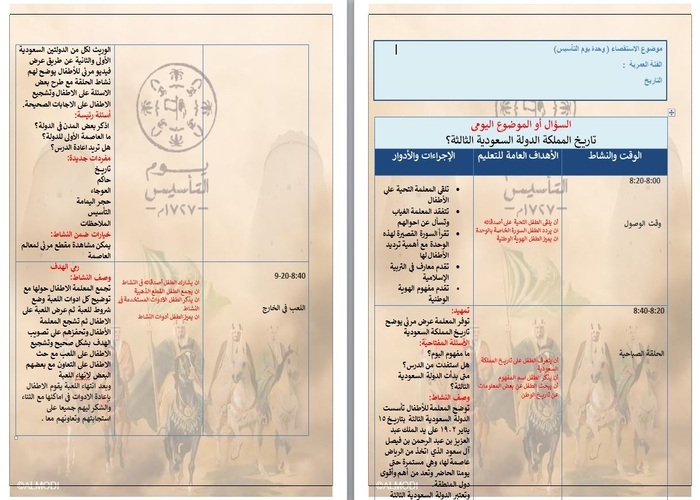 موضوع الاستقصاء ( وحدة يوم التأسيس)
الفئة العمرية :
التاريخ
السؤال أو الموضوع اليومي
تاريخ المملكة الدولة السعودية الثالثة؟
الوقت والنشاط
الأهداف العامة للتعليم
الإجراءات والأدوار
8:20-8:00
وقت الوصول
أن يلقي الطفل التحية على أصدقائه
ان يردد الطفل السورة الخاصة بالوحدة
ان يميز الطفل الهوية الوطنية
تلقي المعلمة التحية على
الأطفال
تتفقد المعلمة الغياب
وتسأل عن احوالهم
تقرأ السورة القصيرة لهذه
الوحدة مع أهمية ترديد
الأطفال لها
تقدم معارف في التربية
الإسلامية
تقدم مفاهيم الهوية
الوطنية
8:40-8:20
الحلقة الصباحية
أن يتعرف الطفل على تاريخ المملكة
السعودية
ان يذكر الطفل اسم المفهوم
ان يبحث الطفل عن بعض المعلومات
عن تاريخ الوطن
تمهيد:
توفر المعلمة عرض مرئي يوضح
تاريخ المملكة السعودية
الأسئلة المفتاحية:
ما مفهوم اليوم؟
هل استفدت من الدرس؟
متى بدأت الدولة السعودية
الثالثة؟
وصف النشاط:
توضح المعلمة للأطفال تأسست
الدولة السعودية الثالثة بتاريخ ١٥
يناير ١٩٠٢ على يد الملك عبد
العزيز بن عبد الرحمن بن فيصل
آل سعود الذي اتخذ من الرياض
عاصمة لها، وهي مستمرة حتى
يومنا الحاضر وتعد من أهم وأقوى
دول المنطقة.
وتعتبر الدولة السعودية الثالثة
الوريث لكل من الدولتين السعودية
الأولى والثانية عن طريق عرض
فيديو مرئي للأطفال يوضح لهم
نشاط الحلقة مع طرح بعض
الاسئلة على الاطفال وتشجيع
الاطفال على الاجابات الصحيحة.
أسئلة رئيسة:
اذكر بعض المدن في الدولة؟
ما العاصمة الأولى للدولة؟
هل تريد إعادة الدرس؟
مفردات جديدة:
تاريخ
حاكم
العوجاء
حجر اليمامة
التأسيس
ملاحظات
خيارات ضمن النشاط:
يمكن مشاهدة مقطع مرئي لمعالم
العاصمة
9-20-8:40
اللعب في الخارج
ان يشارك الطفل أصدقائه في النشاط
ان يجمع الطفل القطع الذهبية
ان يذكر الطفل الادوات المستخدمة في
النشاط
ان يميز الطفل أدوات النشاط
رمي الهدف
وصف النشاط:
تجمع المعلمة الاطفال حولها مع
توضيح كل ادوات اللعبة وضع
شروط للعبة ثم عرض اللعبة على
الاطفال ثم تشجع المعلمة
الأطفال وتحفزهم على تصويب
الهدف بشكل صحيح وتشجيع
الاطفال على اللعب مع حث
الاطفال على التعاون مع بعضهم
البعض لإنهاء اللعبة
وبعد انتهاء اللعبة يقوم الاطفال
بإعادة الادوات في اماكنها مع الثناء
والشكر ليهم جميعا على
استجابتهم وتعاونهم معا .
يوم
التأسيس
١٧٢٧م
يوم
التأسيس
١٧٢٧م
©ALMODI
©ALMODI